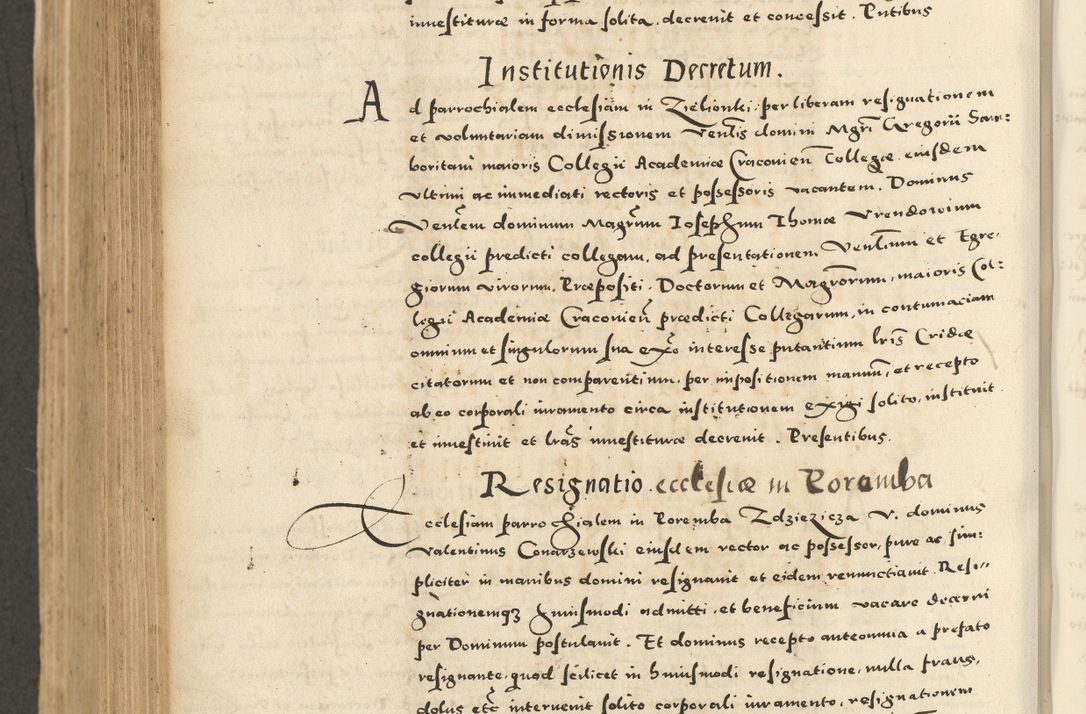 investituræ in forma solita, decrevit et concessit. Pntibus
Institutionis Decretum.
Ad parrochialem ecclesiam in Zielionki, per liberam resignationem
et voluntariam dimissionem Venlis domini Mgri Gregorii Sam=
boritani maioris Collegii Academiæ Cracovien Collegæ eiusdem
ultimi ac immediati rectoris et possessoris vacantem. Dominus
Venlem dominum Magrum Iosephum Thomæ Vrendovium
collegii predicti collegam, ad presentationem Venlium et Egre-
giorum virorum, Præpositi, Doctorum et Magrorum, maioris Col=
legii Academiæ Cracovien prædicti Collegarum, in contumaciam
omnium et singulorum sua exo interesse putantium lris Cridæ
citatorum et non comparentium, per impositionem manuū, et recepto
ab eo corporali iuramento circa institutionem exigi solito, instituit
et investivit et lras investituræ decrevit. Presentibus.
Resignatio ecclesiæ in Poremba
Ecclesiam parrochialem in Poremba Zdziezicza V. dominus
Valentinus Conarzewski eiusdem rector ac possessor, pure ac sim=
pliciter in manibus domini resignavit et eidem renunctiavit. Resi=
gnationemq3 huiusmodi admitti, et beneficium vacare decerni
per Dominum postulavit. Et dominus recepto anteomnia a prefato
resignante, quod scilicet in huiusmodi resignatione, nulla fraus,
dolus etc intervenit solito corporali iuramento, resignationem